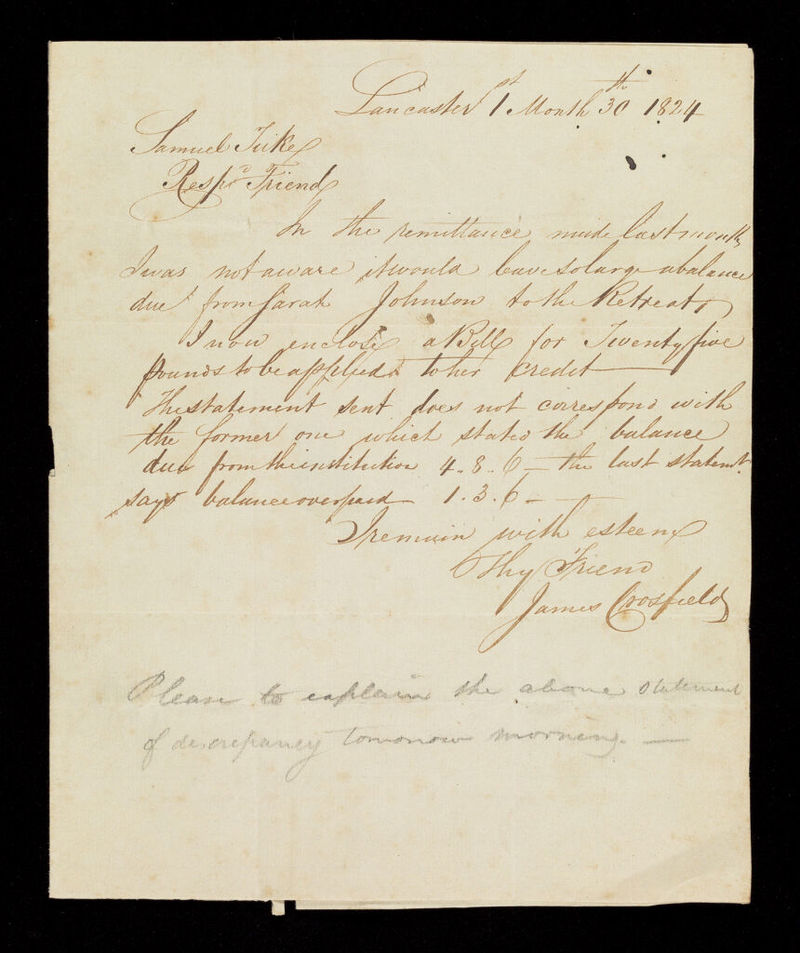 Lancaster 1st Month 30th 1824
Samuel Tuke
Respd Friend
In the remittance made last month
I was not aware it would leave so large a balance
due from Sarah Johnson to the Retreat,
I now enclose a Bill for Twenty five
pounds to be applied to her credit
The statement sent does not correspond with
the former one which stated the balance
due from the institution 4.8.6 – the last statemt
says balance overpaid 1.3.6 –
I remain with esteem
Thy Friend
James Crosfield
Please to explain the above statement
of discrepancy tomorrow morning. —